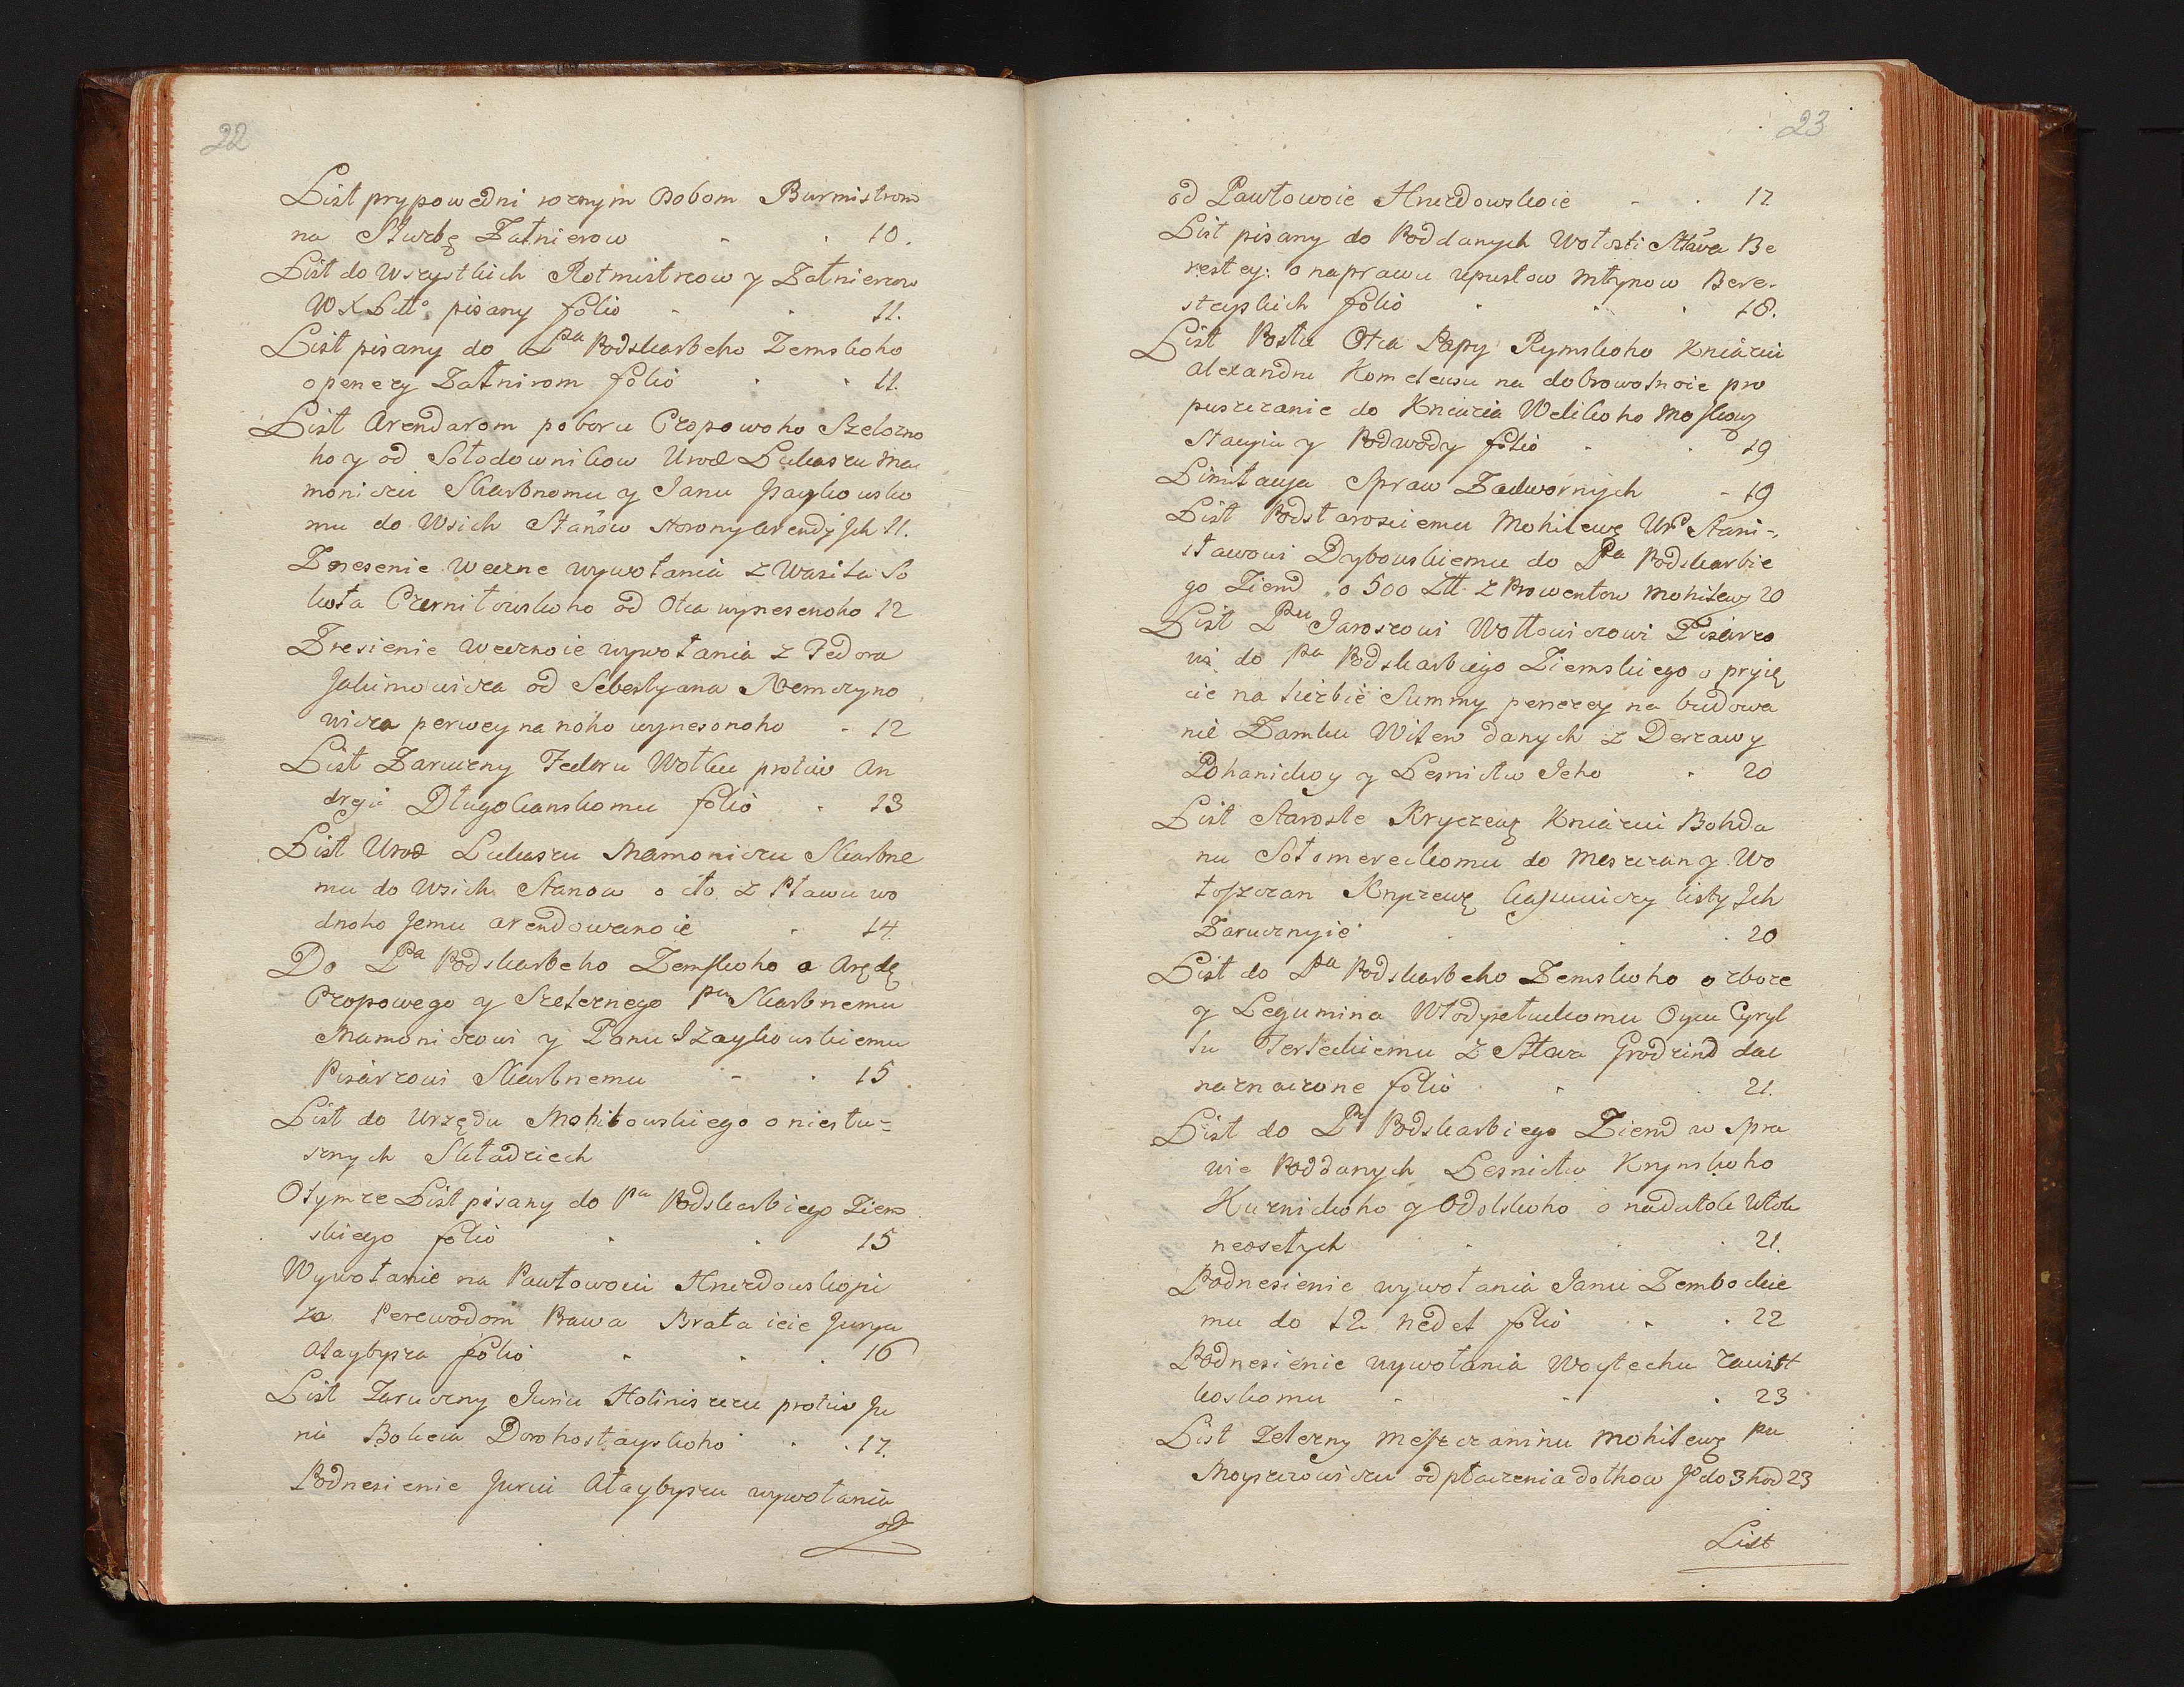 22
List prypowedni roznym Osobom Burmistrom
na Służbę Żałnierow - . 10.
List do Wszystkich Rotmistrzow y Żałnierow
W X Litt° pisany folio - . 11.
List pisany do Pna Podskarbeho Zemskoho
o penezy Żałnirom folio . . 11.
List Arendarom poboru Czopowoho Szelezno
ho y od Sołodownikow Urod Łukaszu Ma
moniczu Skarbnomu y Janu
mu do Wsich Stanów storony arendy Jch 11.
Znesenie weczne wywołania z Wasila So
koła od Otca wynesenoho 12
Znesienie wecznoie wywołania z Fedora
Jakimowicza od Sebestyana Nemczyno
wicza perwey na noho wynesonoho - 12
List Zaruczny Fedoru Wołku protiw An
dreja folio . 13
List Urod Łukaszu Mamoniczu Skarbne
mu do Wsich Stanow o cło z Spławu wo
dnoho Jemu arendowanoie . 14
Do Pna Podskarbeho Zemskoho o Arędę
Czopowego y Szeleznego Pnu Skarbnemu
Mamoniczowi y Panu Jzaykowskiemu
Pisarzowi Skarbnemu - . 15.
List do Urzędu Mohilowskiego o niesłu=
sznych Składziech
O tymze List pisany do Pna Podskarbiego Ziem
skiego folio . . 15
Wywołanie na Pawłowoui Hneedowskopi
za Perewodom Prawa Brata ieie Jurya
Ałaybysza folio . . . 16
List Zaruczny Juriu Holiniszczu protiw Ju
ria Bokieia Dorohostayskoho . . 17.
Podnesienie Juriu Ałaybyszu wywołania
od
23
od Pawłowoie Hneedowskoie - . 17
List pisany do Poddanych Wołosti Stawa Be
restey: o naprawu upustow Młynow Bere-
steyskich folio . . . 18.
List Posła Otca Papy Rymskoho Kniaziu
Alexandru Komeleusu na dobrowolnoie pro
puszczanie do Kniazia Welikoho Moskow
Stacyia y Podwody folio . . 19
Limitacya Spraw Zadwornych - 19
List Podstarosciemu Mohilewę Urd Stani-
sławowi Dybowskiemu do Pna Podskarbie
go Ziemd o 500 Zlt. z Prowentow Mohilew 20
List Pnu Jaroszowi Wołłowiczowi Pisarzo
wi do Pna Podskarbiego Ziemskiego o pryię
cie na liczbie Summy penezey na budowa
nie Zamku Witew danych z Derzawy
y Lesnictw Jeho . 20
List Staroste Kryczewę Kniaziu Bohda
nu Sołomereckomu do Meszczan y Wo
łoszczan Kryczewę kassuuiczy listy Jch
Zarucznyie . . . 20
List do Pna Podskarbeho Zemskoho o zboze
y Legumina Włodyce Łuckomu Oycu Cyryl
lu Terleckiemu z Stawa Grodzind dac
naznaczone folio . . 21.
List do Pn Podskarbiego Ziemd w spra
wie Poddanych Lesnictw Krynskoho
Kuznickoho y Odolskoho o nadatok Włok
neosełych . . . 21.
Podnesienie wywołania Janu Zembockie
mu do 12 nedel folio . . 22
Podnesienie wywołania Woytechu Zawist
koskomu - - . 23
List Zelezny Meszczaninu Mohilewę Pnu
Moyszeiowiczu od płaczenia dołhow Jo do 3 hod 23
List